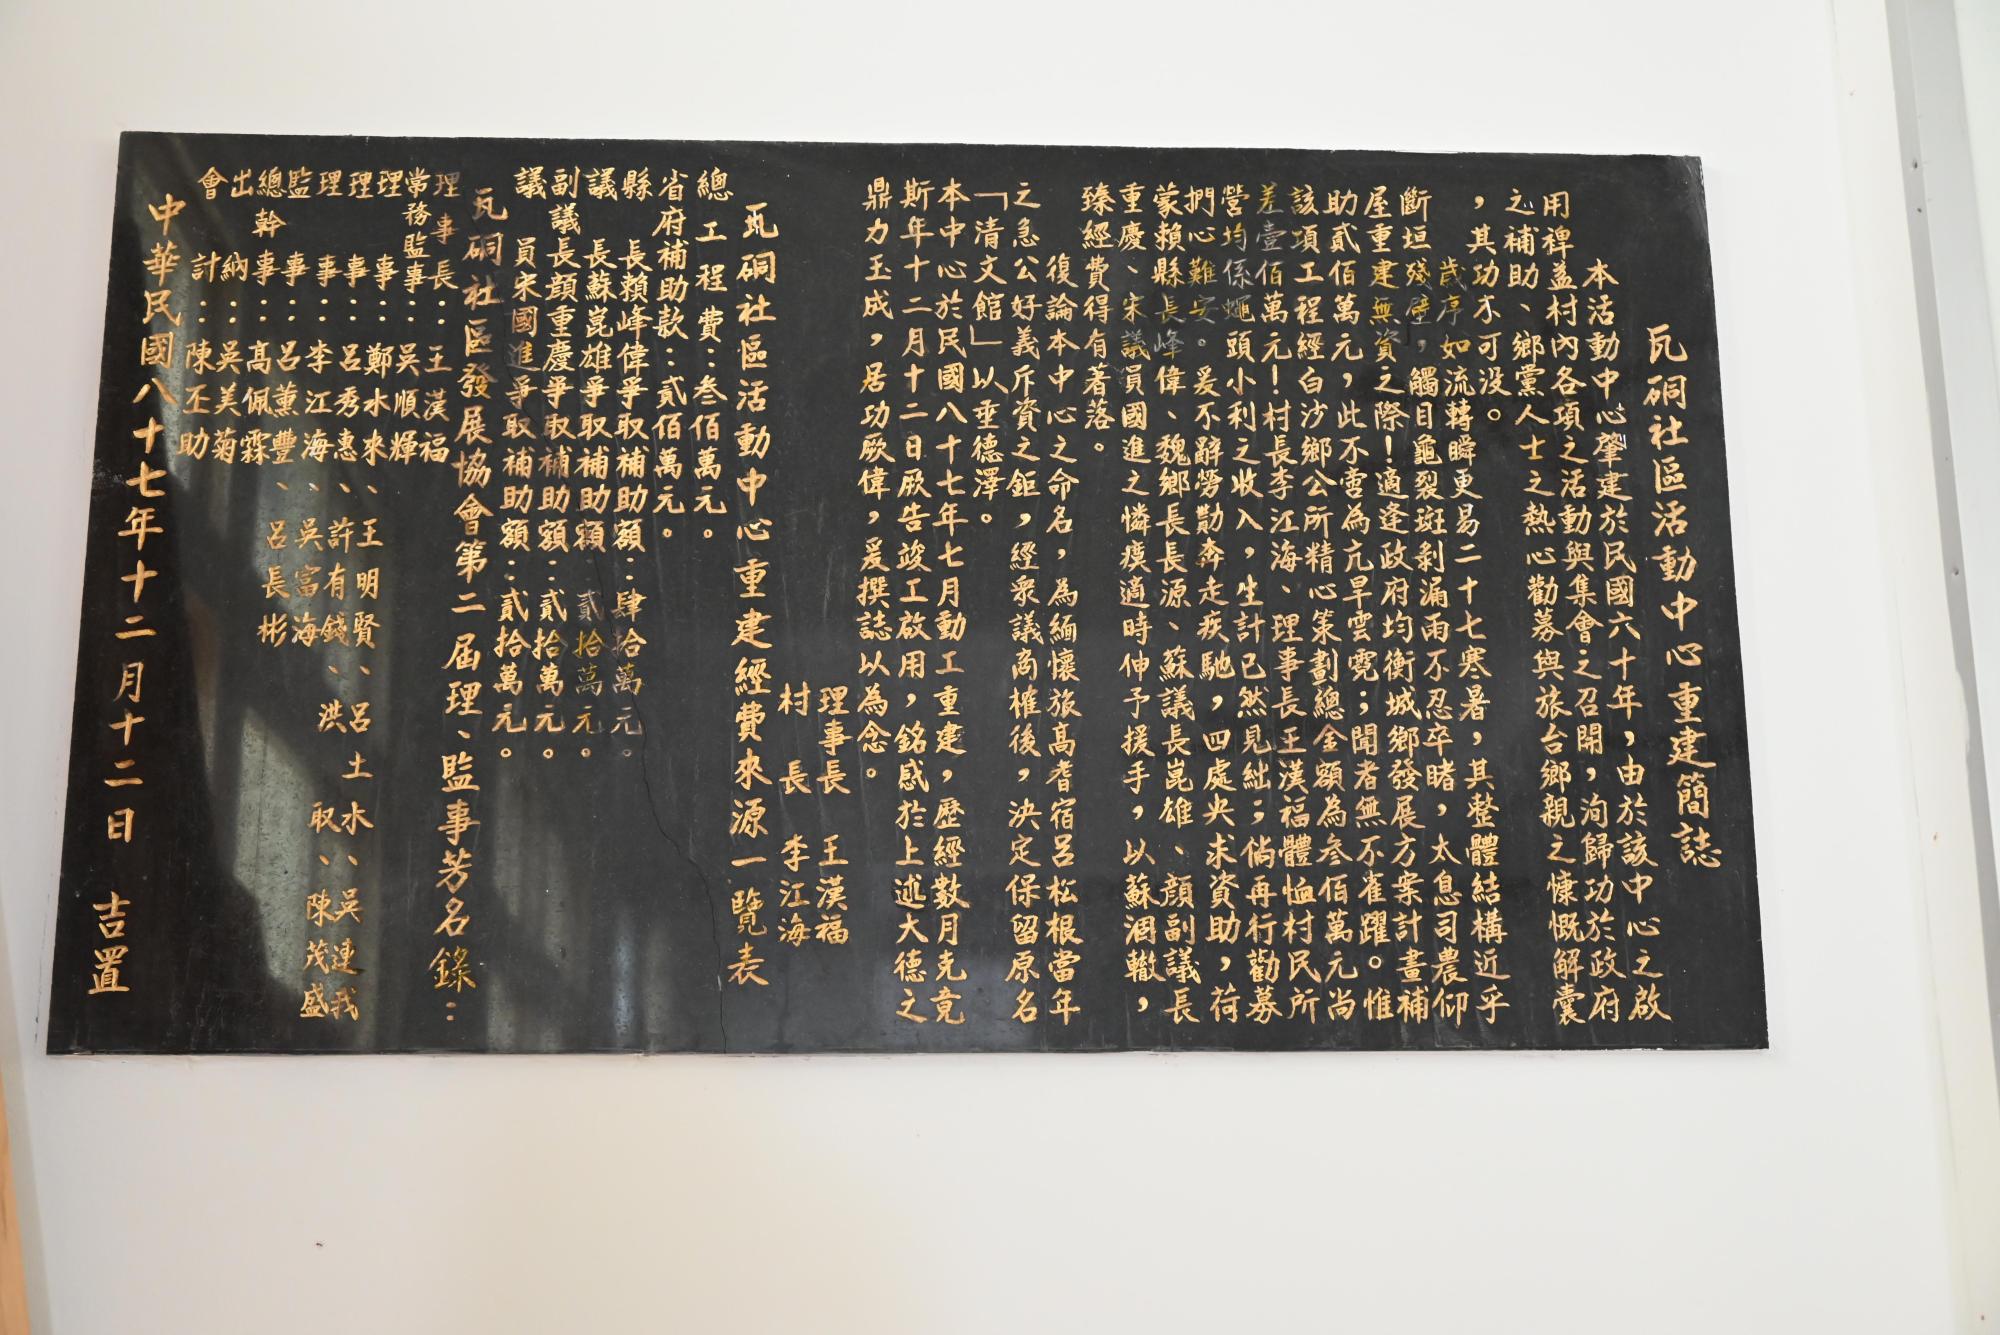 瓦硐社區活動中心重建簡誌
本活動中心肇建於民國六十年，由於該中心之啟
用裨益村內各項之活動與集會之召開，洵歸功於政府
之補助、鄉黨人士之熱心勸募與旅台鄉親之慷慨解囊
，其功不可没。
歲序如流轉瞬更易二十七寒暑，其整體結構近乎
斷垣殘壁，觸目龜裂斑剥漏雨不忍卒睹，太息司農仰
屋重建無資之際！適逢政府均衡城鄉發展方案計畫補
助貳佰萬元，此不啻為亢旱雲霓；聞者無不雀躍。惟
該項工程經白沙鄉公所精心策劃總金額為參佰萬元尚
差壹佰萬元！村長李江海、理事長王漢福體恤村民所
營均係蠅頭小利之收入，生計已然見絀；倘再行勸募
捫心難安。爰不辭勞勩奔走疾馳，四處央求資助，荷
蒙賴縣長峰偉、魏鄉長長源、蘇議長崑雄、顏副議長
重慶、宋議員國進之憐瘼適時伸予援手，以蘇涸轍，
臻經費得有著落。
復論本中心之命名，為緬懷旅高耆宿呂松根當年
之急公好義斥資之鉅，經衆議商榷後，決定保留原名
「清文館」以垂德澤。
本中心於民國八十七年七月動工重建，歷經數月克竟
斯年十二月十二日厥告竣工啟用，銘感於上述大德之
鼎力玉成，居功厥偉，爰撰誌以為念。
理事長 王漢福
村長 李江海
瓦硐社區活動中心重建經費來源一覽表
總工程費：叁佰萬元。
省府補助款：貳佰萬元。
縣長賴峰偉爭取補助額：肆拾萬元。
議長蘇崑雄爭取補助額：貳拾萬元。
副議長顏重慶爭取補助額：貳拾萬元。
議員宋國進爭取補助額：貳拾萬元。
瓦硐社區發展協會第二屆理、監事芳名錄：
理事長：王漢福
常務監事：吳順輝
理事：鄭水來、王明賢、呂土水、吳連我
理事：呂秀惠、許有錢、洪取、陳茂盛
理事：李江海、吳富海
監事：呂薰豐、呂長彬
總幹事：高佩霖
出納：吳美菊
會計：陳丕助
中華民國八十七年十二月十二日 吉置